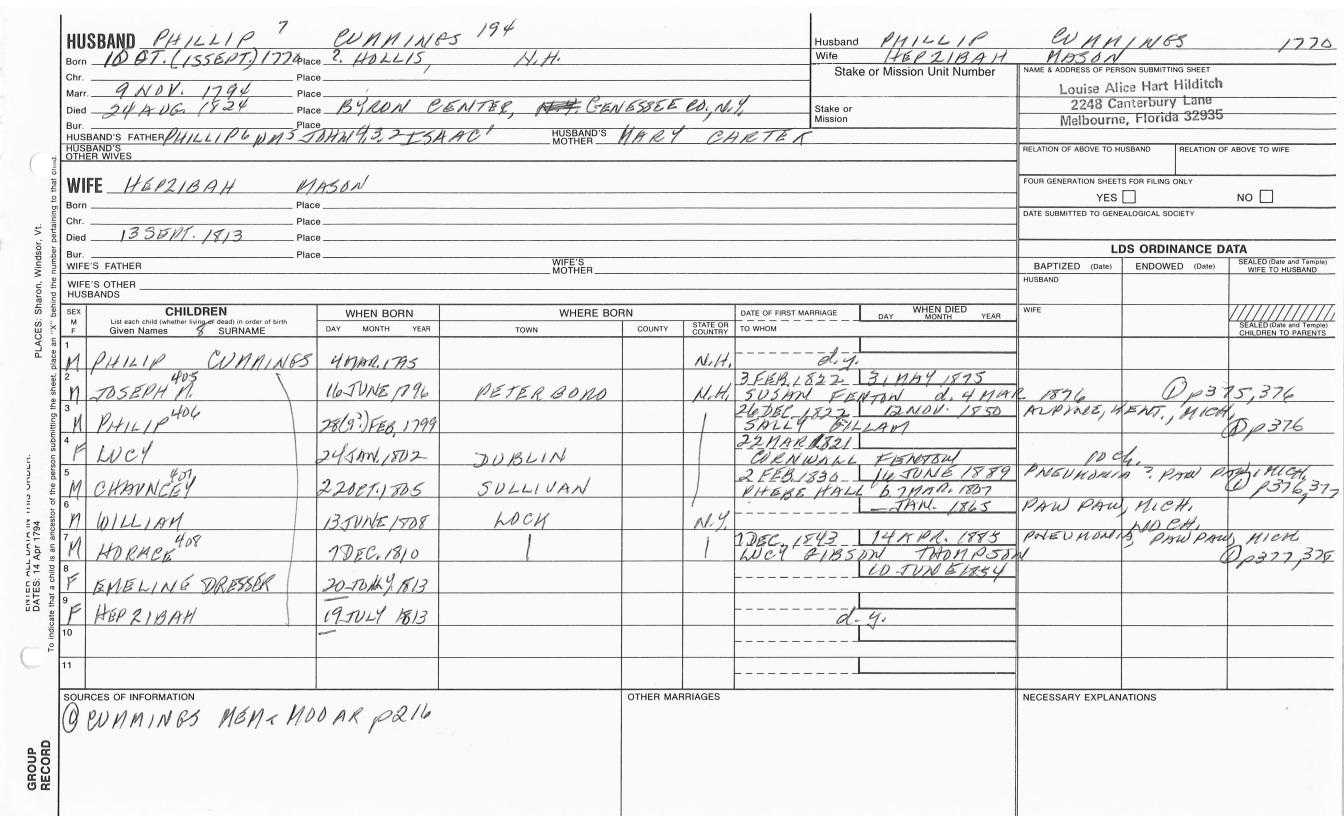 HUSBAND PHILLIP 7 CUMMINGS 194
Born 10 OT. (15 SEPT.) 1770 Place ?. HOLLIS, N.H.
Chr. Place
Marr. 9 NOV. 1794 Place
Died 24 AUG. 1824 Place BYRON CENTER, GENESSEE CO, N.Y.
Bur. Place
HUSBAND'S FATHER PHILLIP 6 WM 5 JOHN 4,3,2 ISAAC 1 HUSBAND'S MOTHER MARY CARTER
HUSBAND'S OTHER WIVES
Husband PHILLIP CUMMINGS 1770
Wife HEPZIBAH MASON
Stake or Mission Unit Number
Stake or Mission
NAME & ADDRESS OF PERSON SUBMITTING SHEET
Louise Alice Hart Hilditch
2248 Canterbury Lane
Melbourne, Florida 32935
RELATION OF ABOVE TO HUSBAND RELATION OF ABOVE TO WIFE
FOUR GENERATION SHEETS FOR FILING ONLY
YES NO
DATE SUBMITTED TO GENEALOGICAL SOCIETY
WIFE HEPZIBAH MASON
Born Place
Chr. Place
Died 13 SEPT. 1813 Place
Bur. Place
WIFE'S FATHER WIFE'S MOTHER
WIFE'S OTHER HUSBANDS
LDS ORDINANCE DATA
BAPTIZED (Date) ENDOWED (Date) SEALED (Date and Temple) WIFE TO HUSBAND
HUSBAND
WIFE
SEALED (Date and Temple) CHILDREN TO PARENTS
SEX M F
CHILDREN
List each child (whether living or dead) in order of birth
Given Names 8 SURNAME
WHEN BORN
DAY MONTH YEAR
WHERE BORN
TOWN COUNTY STATE OR COUNTRY
DATE OF FIRST MARRIAGE
TO WHOM
WHEN DIED
DAY MONTH YEAR
1 M PHILIP CUMMINGS 4 MAR. 1795 N.H. d.y.
2 M JOSEPH M. 405 16 JUNE 1796 PETER BORO N.H. 3 FEB, 1822 31 MAY 1875
SUSAN FENTON d. 4 MAR 1876 ① p375,376
3 M PHILIP 406 28(9?) FEB, 1799 26 DEC, 1822 12 NOV. 1850 ALPINE, KENT., MICH,
SALLY GILLAM ① p376
4 F LUCY 24 JAN. 1802 DUBLIN 22 MAR 1821
CORNWALL FENTON 10 ch.
5 M CHAUNCEY 407 22 OCT. 1805 SULLIVAN 2 FEB. 1830 16 JUNE 1889 PNEUMONIA ? PAW PAW, MICH,
PHEBE HALL b 7 MAR. 1807 ① p376,377
6 M WILLIAM 13 JUNE 1808 LOCK N.Y. — JAN. 1865 PAW PAW, MICH.
NO CH.
7 M HORACE 408 7 DEC. 1810 7 DEC. 1843 14 APR. 1885 PNEUMONIA, PAW PAW, MICH
LUCY GIBSON THOMPSON ① p377,378
8 F EMELING DRESSER 1813 10 JUNE 1854
9 F HEPZIBAH 19 JULY 1813 d.y.
10
11
SOURCES OF INFORMATION
① CUMMINGS MEM p216
OTHER MARRIAGES
NECESSARY EXPLANATIONS
PLACES: Sharon, Windsor, Vt.
DATES: 14 Apr 1794
To indicate that a child is an ancestor of the person submitting the sheet, place an "X" behind the number pertaining to that child.
GROUP RECORD